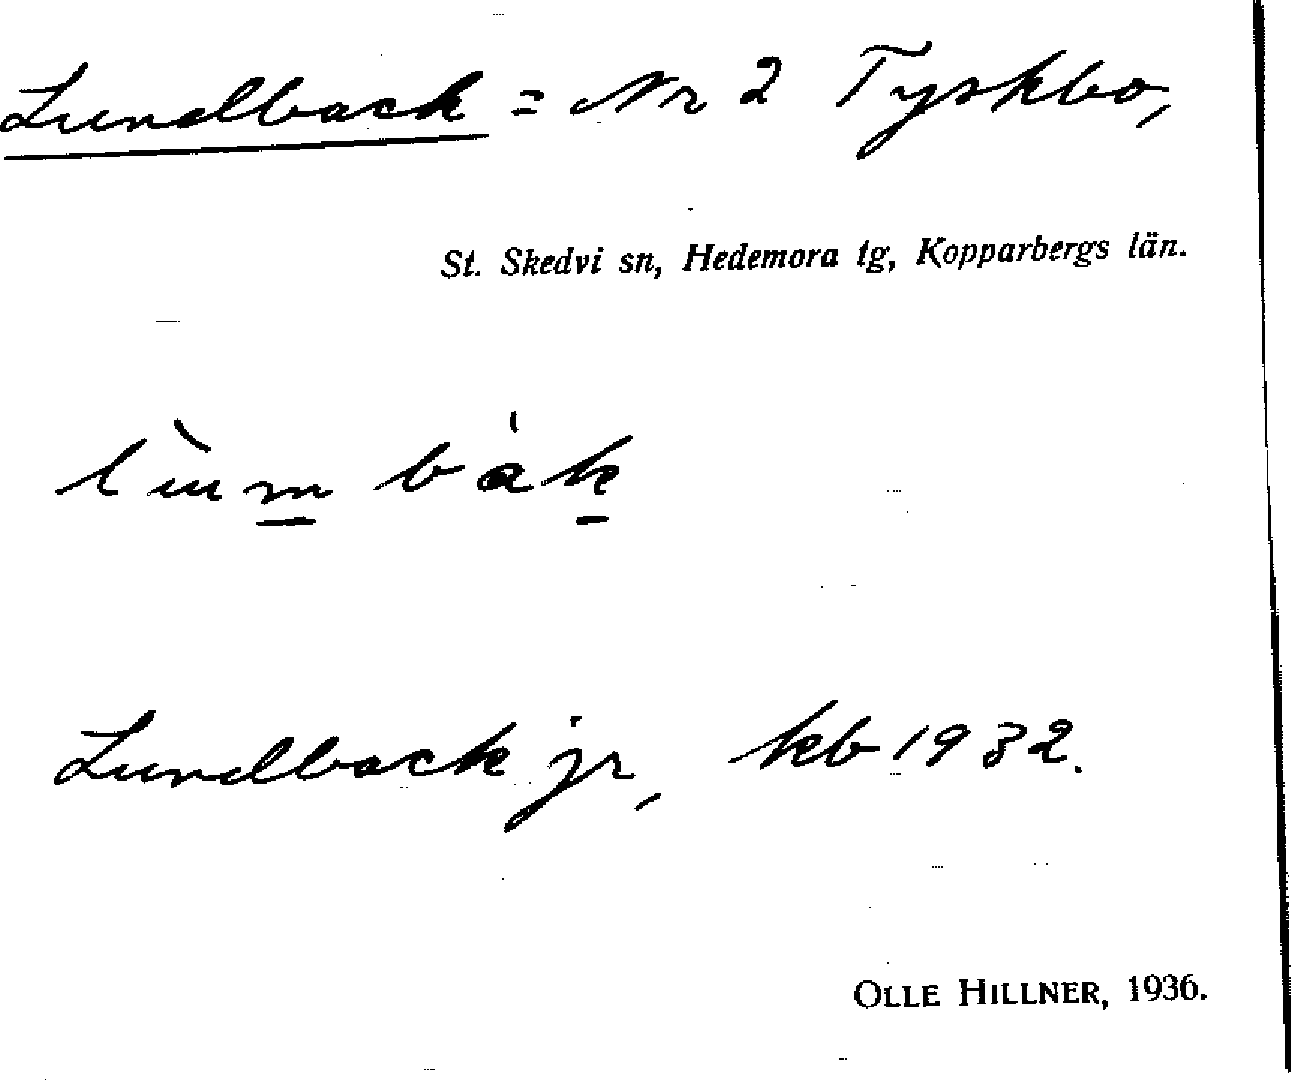 Lundback = Nr 2 Tyskbo,
St. Skedvi sn, Hedemora tg, Kopparbergs län.
lùmbàk
Lundback jr, kb 1932.
OLLE HILLNER, 1936.